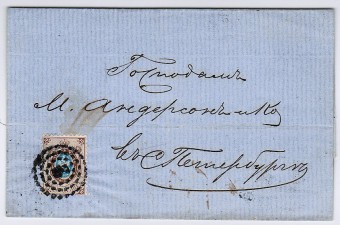 Господамъ
М. Андерсонъ и Ко
въ С Петербургъ